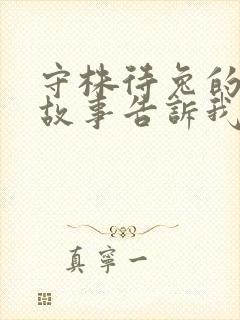 守株待兔的
故事告訴我
真寧一